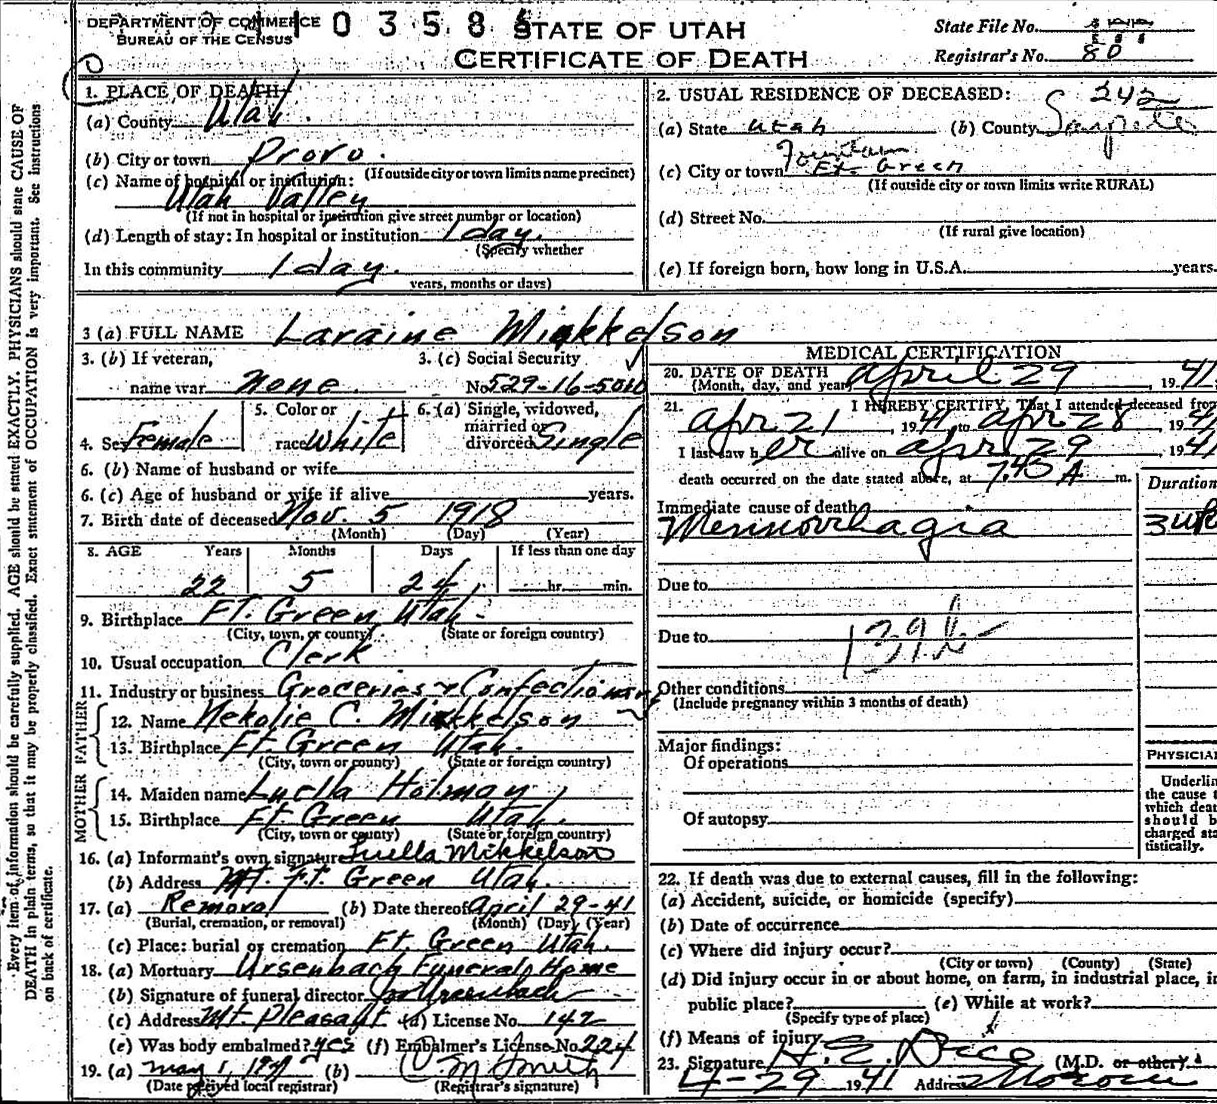 DEPARTMENT OF COMMERCE
BUREAU OF THE CENSUS
1 1 0 3 5 8
STATE OF UTAH
CERTIFICATE OF DEATH
State File No.
Registrar's No. 80
Every item of information should be carefully supplied. AGE should be stated EXACTLY. PHYSICIANS should state CAUSE OF
DEATH in plain terms, so that it may be properly classified. Exact statement of OCCUPATION is very important. See instructions
on back of certificate.
1. PLACE OF DEATH
(a) County Utah.
(b) City or town Provo.
(If outside city or town limits name precinct)
(c) Name of hospital or institution:
Utah Valley
(If not in hospital or institution give street number or location)
(d) Length of stay: In hospital or institution 1 day.
(Specify whether
In this community 1 day.
years, months or days)
2. USUAL RESIDENCE OF DECEASED: 242
(a) State Utah (b) County Sanpete
Fountain
(c) City or town Ft. Green
(If outside city or town limits write RURAL)
(d) Street No.
(If rural give location)
(e) If foreign born, how long in U.S.A. years.
3 (a) FULL NAME Laraine Mikkelson
3. (b) If veteran,
name war None
3. (c) Social Security
No. 529-16-5010
4. Sex Female
5. Color or
race White
6. (a) Single, widowed,
married or
divorced Single
6. (b) Name of husband or wife
6. (c) Age of husband or wife if alive years.
7. Birth date of deceased Nov. 5 1918
(Month) (Day) (Year)
8. AGE Years Months Days If less than one day
22 5 24 hr. min.
9. Birthplace Ft. Green Utah.
(City, town, or county) (State or foreign country)
10. Usual occupation Clerk
11. Industry or business Groceries & Confectionary
FATHER
12. Name C. Mikkelson
13. Birthplace Ft. Green Utah.
(City, town or county) (State or foreign country)
MOTHER
14. Maiden name Luella Holman
15. Birthplace Ft Green Utah.
(City, town or county) (State or foreign country)
16. (a) Informant's own signature Luella Mikkelson
(b) Address Ft. Green Utah.
17. (a) Removal (b) Date thereof April 29-41
(Burial, cremation, or removal) (Month) (Day) (Year)
(c) Place: burial or cremation Ft. Green Utah.
18. (a) Mortuary Ursenbach Funeral Home
(b) Signature of funeral director Ursenbach
(c) Address Mt. Pleasant (d) License No. 142
(e) Was body embalmed? yes (f) Embalmer's License No. 224
19. (a) May 1, 1941 (b) Smith
(Date received local registrar) (Registrar's signature)
MEDICAL CERTIFICATION
20. DATE OF DEATH
(Month, day, and year) April 29 1941
21. I HEREBY CERTIFY, That I attended deceased from
Apr 21, 1941 to Apr 28, 194
I last saw her alive on Apr. 29 1941
death occurred on the date stated above, at 7.45 A m.
Duration
Immediate cause of death
Mennorrhagia 3 wk
Due to
Due to 139b
Other conditions
(Include pregnancy within 3 months of death)
Major findings:
Of operations
Of autopsy
PHYSICIAN
Underline
the cause t
which death
should b
charged sta
tistically.
22. If death was due to external causes, fill in the following:
(a) Accident, suicide, or homicide (specify)
(b) Date of occurrence
(c) Where did injury occur?
(City or town) (County) (State)
(d) Did injury occur in or about home, on farm, in industrial place, in
public place? (e) While at work?
(Specify type of place)
(f) Means of injury
23. Signature H. E. (M.D. or other)
4-29 1941 Address Moroni